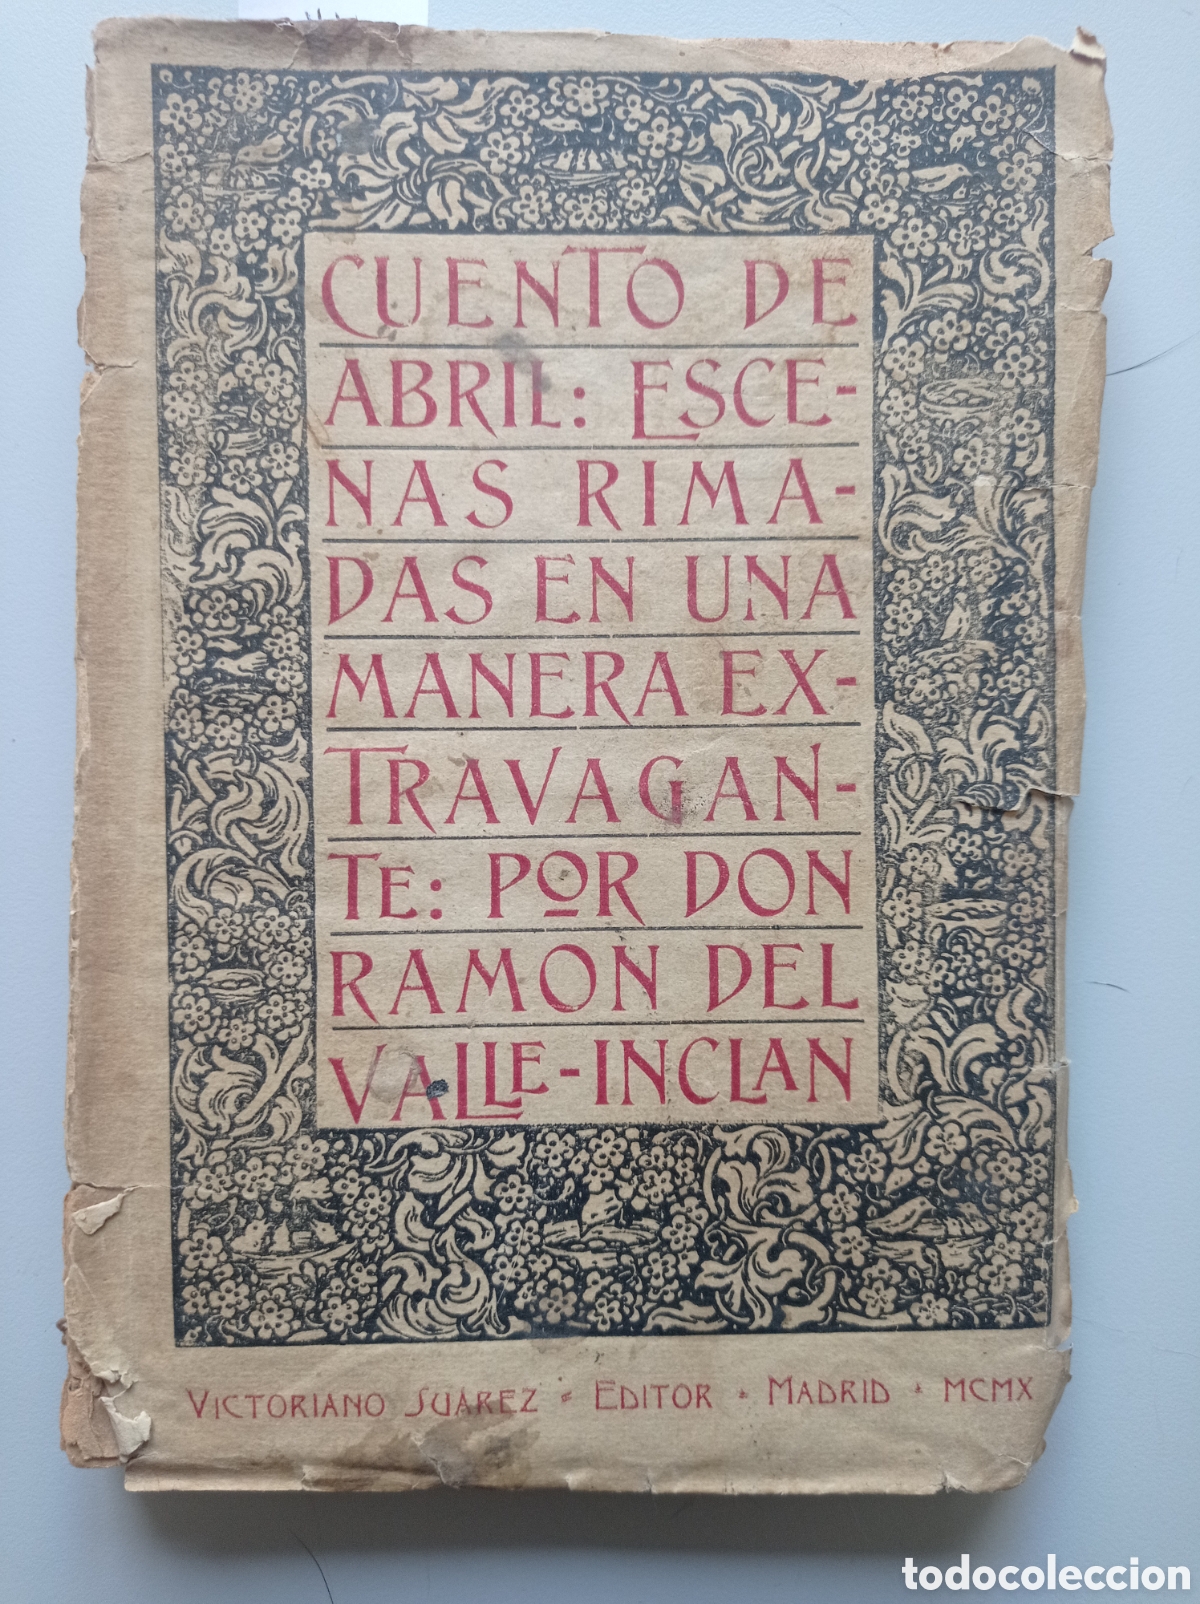 CUENTO DE
ABRIL: ESCE-
NAS RIMA-
DAS EN UNA
MANERA EX-
TRAVAGAN-
TE: POR DON
RAMON DEL
VALLE-INCLAN
VICTORIANO SUAREZ - EDITOR - MADRID - MCMX
todocoleccion